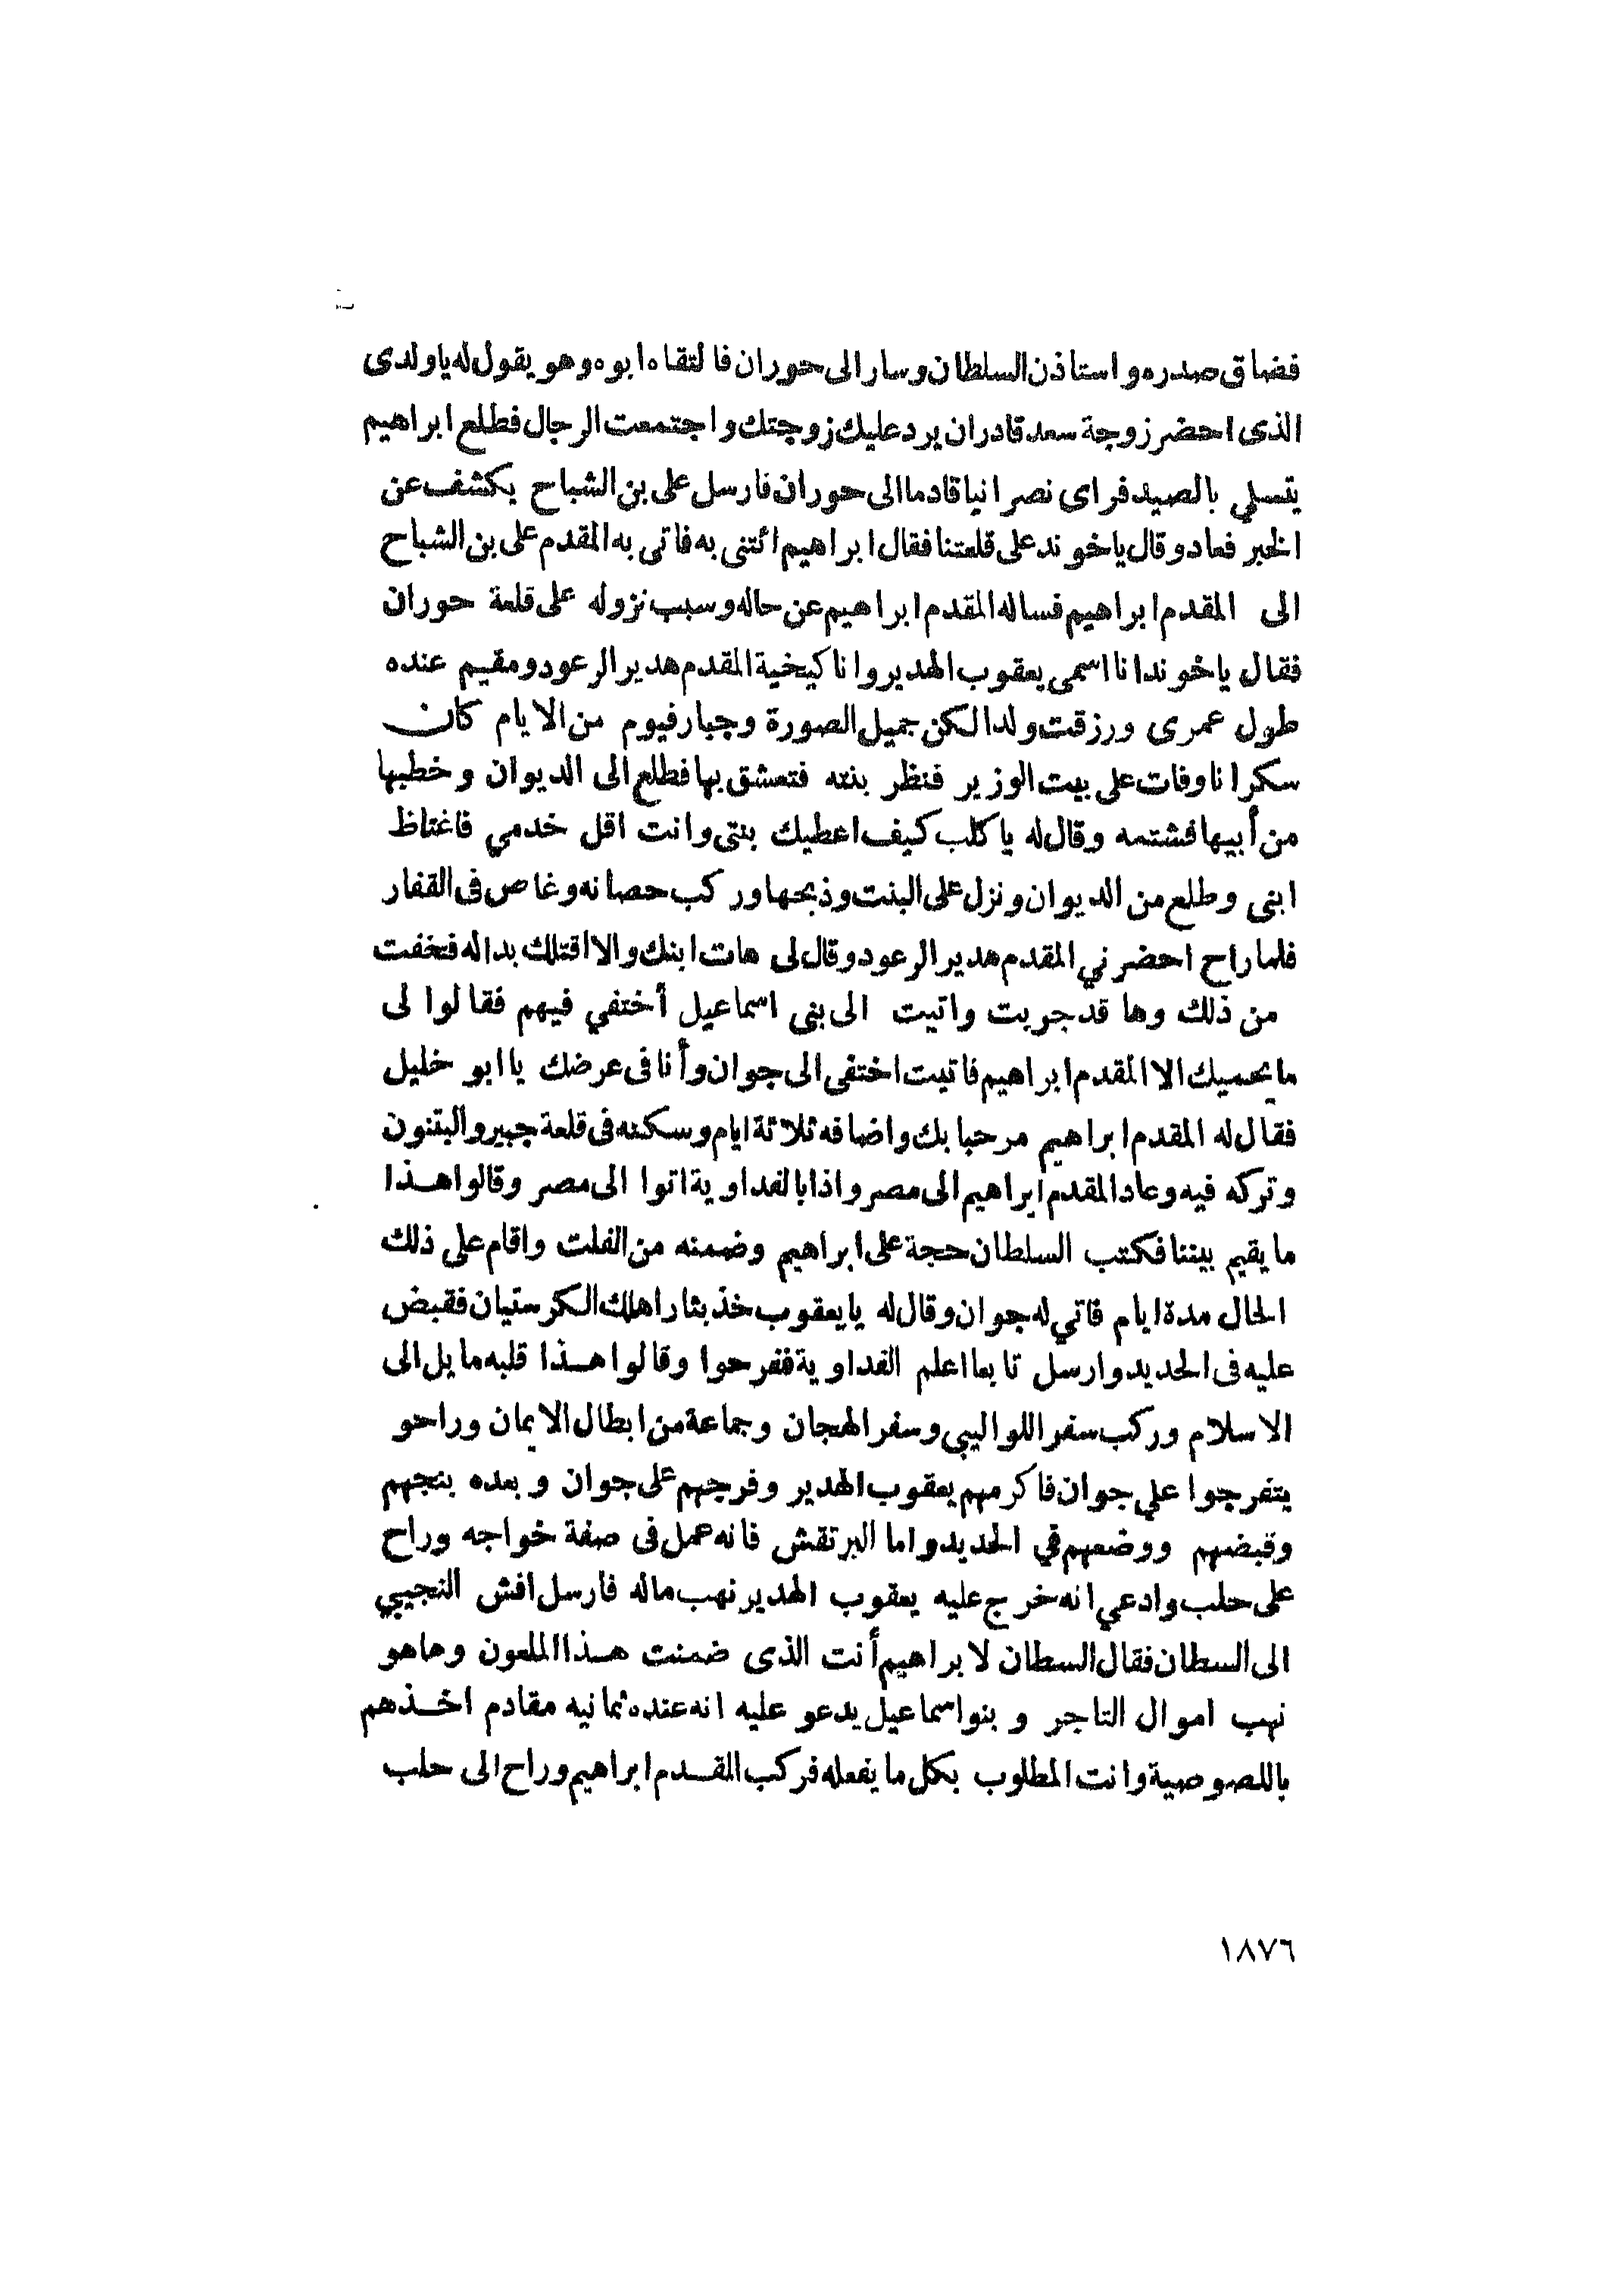 فضاق صدره واستاذن السلطان وسار الى حوران فالتقاه ابوه وهو يقول له ياولدى
الذى احضر زوجة سعد قادران يرد عليك زوجتك واجتمعت الرجال فطلع ابراهيم
يتسلي بالصيد فراى نصرانيا قادما الى حوران فارسل على بن الشباح يكشف عن
الخبر فعاد وقال ياخوند على قلعتنا فقال ابراهيم ائتنى به فاتى به المقدم على بن الشباح
الى المقدم ابراهيم فساله المقدم ابراهيم عن حاله وسبب نزوله على قلعة حوران
فقال ياخوند انا اسمى يعقوب الهدير وانا كيخية المقدم هدير الرعود ومقيم عنده
طول عمرى ورزقت ولدا لكن جميل الصورة وجبار فيوم من الايام كان
سكرانا وفات على بيت الوزير فنظر بنته فتعشق بها فطلع الى الديوان وخطبها
من أبيها فشتمه وقال له ياكلب كيف اعطيك بنتى وانت اقل خدمي فاغتاظ
ابنى وطلع من الديوان ونزل على البنت وذبحها وركب حصانه وغاص فى القفار
فلما راح احضرني المقدم هدير الرعود وقال لى هات ابنك والا اقتلك بداله فتخفت
من ذلك وها قد جريت واتيت الى بنى اسماعيل أختفي فيهم فقالوا لى
ما يحميك الا المقدم ابراهيم فاتيت اختفى الى جوان وأنا فى عرضك يا ابو خليل
فقال له المقدم ابراهيم مرحبا بك واضافه ثلاثة ايام وسكنه فى قلعة جبير والبتنون
وتركه فيه وعاد المقدم ابراهيم الى مصر واذا بالفداوية اتوا الى مصر وقالوا هذا
ما يقيم بيننا فكتب السلطان حجة على ابراهيم وضمنه من الفلت واقام على ذلك
الحال مدة ايام فاتي له جوان وقال له يايعقوب خذ بثار اهلك الكرستيان فقبض
عليه فى الحديد وارسل تابعا اعلم الفداوية ففرحوا وقالوا هذا قلبه مايل الى
الاسلام وركب سفر اللواليبي وسفر الهجان وجماعة من ابطال الايمان وراحو
يتفرجوا علي جوان فاكرمهم يعقوب الهدير وفرجهم على جوان وبعده بنجهم
وقبضهم ووضعهم في الحديد واما البرتقش فانه عمل فى صفة خواجه وراح
على حلب وادعي انه خرج عليه يعقوب الهدير نهب ماله فارسل افش النجيبي
الى السطان فقال السطان لابراهيم أنت الذى ضمنت هذا الملعون وماهو
نهب اموال التاجر وبنو اسماعيل يدعو عليه انه عنده ثمانيه مقادم اخذهم
باللصوصية وانت المطلوب بكل ما يفعله فركب المقدم ابراهيم وراح الى حلب
١٨٧٦